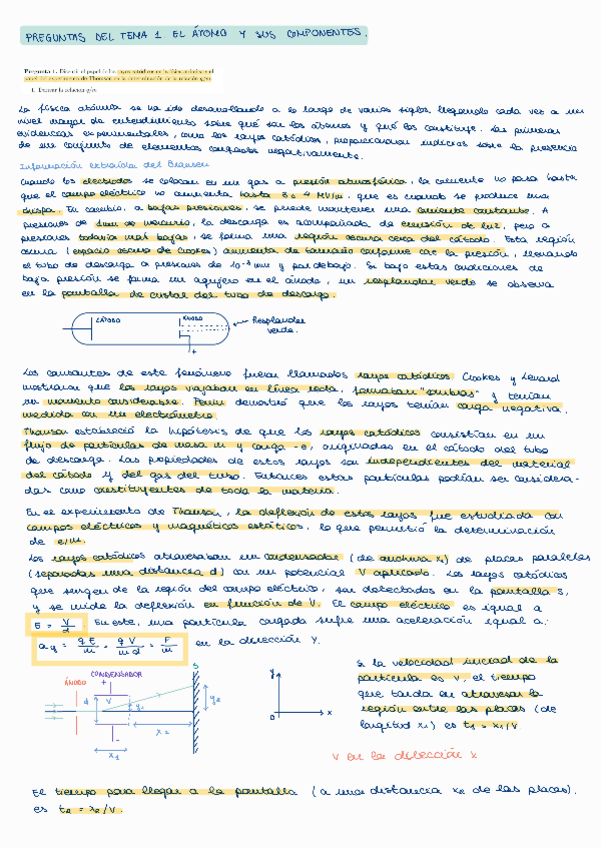 PREGUNTAS DEL TEMA 1. EL ÁTOMO Y SUS COMPONENTES.
Pregunta 1. Discutir el papel de los rayos catódicos en la física atómica y el
papel del experimento de Thomson en la determinación de la relación q/m.
1. Derivar la relación q/m
La física atómica se ha ido desarrollando a lo largo de varios siglos, llegando cada vez a un
nivel mayor de entendimiento sobre qué son los átomos y qué los constituye. Las primeras
evidencias experimentales, como los rayos catódicos, proporcionaron indicios sobre la presencia
de un conjunto de elementos cargados negativamente.
Información extraída del Bransen
Cuando los electrodos se colocan en un gas a presión atmosférica, la corriente no pasa hasta
que el campo eléctrico no aumenta hasta 3 ó 4 MV/m, que es cuando se produce una
chispa. En cambio, a bajas presiones, se puede mantener una corriente constante. A
presiones de 1 mm de mercurio, la descarga es acompañada de emisión de luz, pero a
presiones todavía más bajas, se forma una región oscura cerca del cátodo. Esta región
oscura (espacio oscuro de Crookes) aumenta de tamaño conforme cae la presión, llenando
el tubo de descarga a presiones de 10⁻³ mm y por debajo. Si bajo estas condiciones de
baja presión se forma un agujero en el ánodo, un resplandor verde se observa
en la pantalla de cristal del tubo de descarga.
CÁTODO
ÁNODO
Resplandor
verde.
+
Los causantes de este fenómeno fueron llamados rayos catódicos. Crookes y Lenard
mostraron que los rayos viajaban en línea recta, formaban "sombras" y tenían
un momento considerable. Perrin demostró que los rayos tenían carga negativa,
medida con un electrómetro.
Thomson estableció la hipótesis de que los rayos catódicos consistían en un
flujo de partículas de masa m y carga -e, originadas en el cátodo del tubo
de descarga. Las propiedades de estos rayos son independientes del material
del cátodo y del gas del tubo. Entonces estas partículas podían ser considera-
das como constituyentes de toda la materia.
En el experimento de Thomson, la deflexión de estos rayos fue estudiada con
campos eléctricos y magnéticos estáticos, lo que permitió la determinación
de e/m.
Los rayos catódicos atravesaban un condensador (de anchura x₁) de placas paralelas
(separadas una distancia d) con un potencial V aplicado. Los rayos catódicos
que surgen de la región del campo eléctrico, son detectados en la pantalla S,
y se mide la deflexión en función de V. El campo eléctrico es igual a
E = V/d. En este, una partícula cargada sufre una aceleración igual a:
ay = qE/m = qV/md = F/m en la dirección Y.
ÁNODO
CONDENSADOR
+
d
V
y₁
y₂
S
-
x₁
x₂
y
0
x
Si la velocidad inicial de la
partícula es v, el tiempo
que tarda en atravesar la
región entre las placas (de
longitud x₁) es t₁ = x₁/v.
v en la dirección x
El tiempo para llegar a la pantalla (a una distancia x₂ de las placas),
es t₂ = x₂/v.